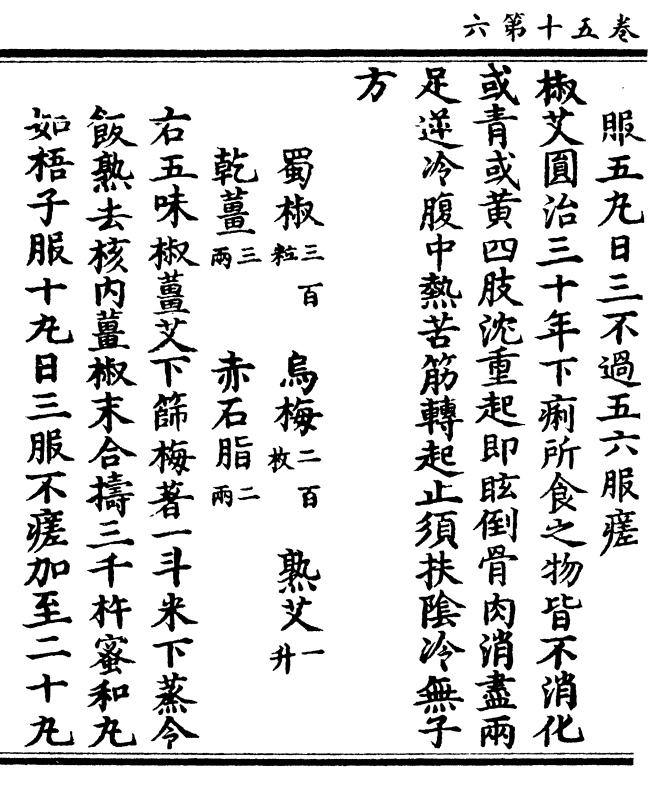 卷五十第六
服五丸日三不過五六服瘥
椒艾圓治三十年下痢所食之物皆不消化
或青或黃四肢沈重起即眩倒骨肉消盡兩
足逆冷腹中熱苦筋轉起止須扶陰冷無子
方
蜀椒三百粒 烏梅二百枚 熟艾一升
乾薑三兩 赤石脂二兩
右五味椒薑艾下篩梅著一斗米下蒸令
飯熟去核內薑椒末合擣三千杵蜜和丸
如梧子服十丸日三服不瘥加至二十丸